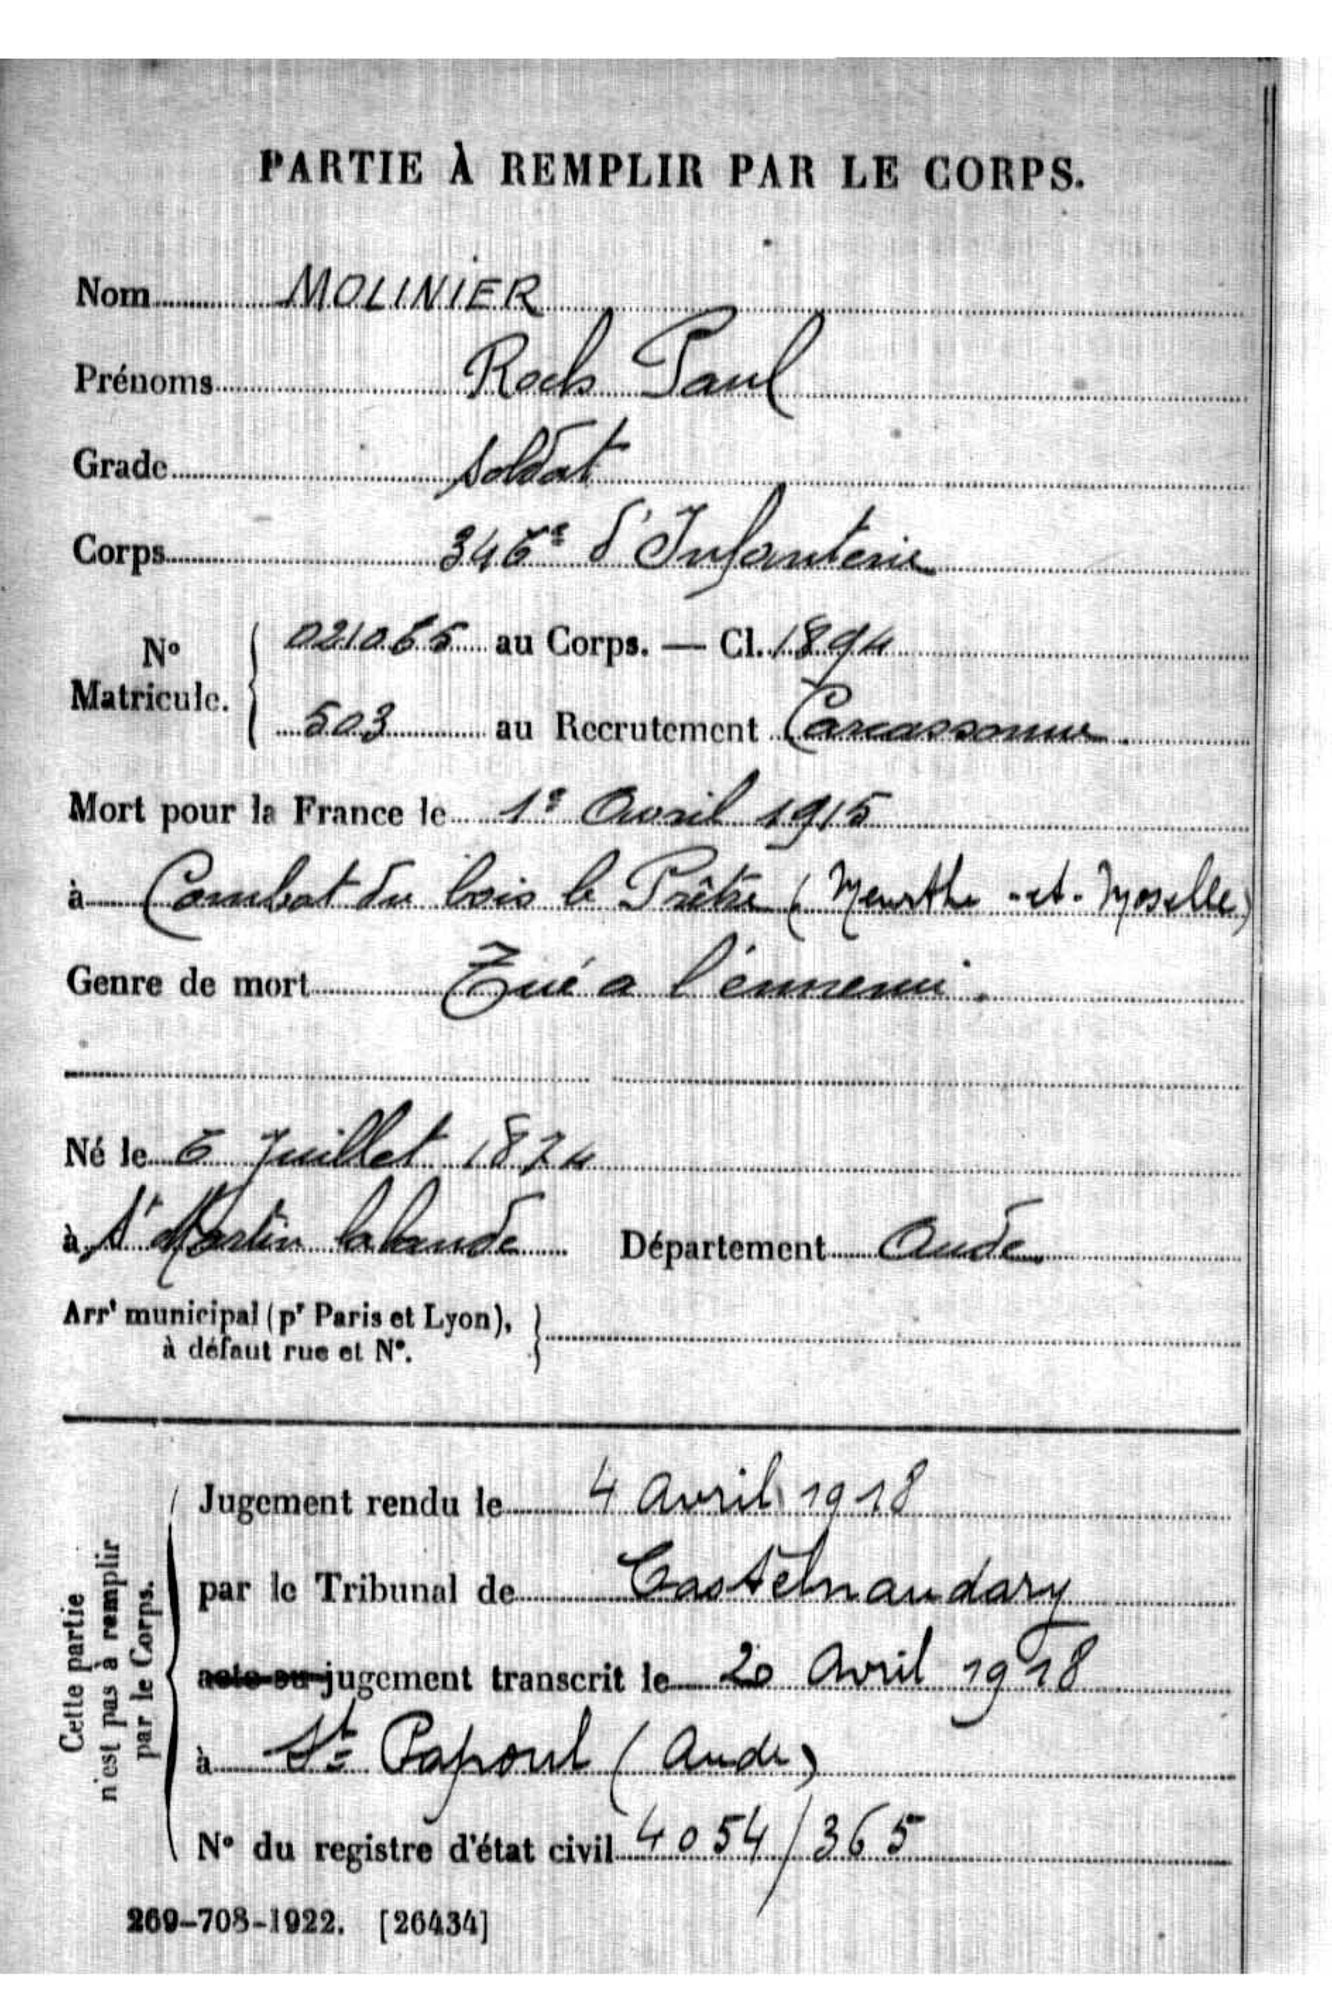 PARTIE À REMPLIR PAR LE CORPS.
Nom MOLINIER
Prénoms Roch Paul
Grade soldat
Corps 346e d'Infanterie
N° Matricule. { 021065 au Corps. — Cl. 1894
503 au Recrutement Carcassonne
Mort pour la France le 1e Avril 1915
à Combat du bois le Prêtre (Meurthe-et-Moselle)
Genre de mort Tué a l'ennemi.
Né le 6 Juillet 1874
à St Martin lalande Département Aude
Arrt municipal (pr Paris et Lyon), à défaut rue et N°. }
Cette partie n'est pas à remplir par le Corps.
Jugement rendu le 4 Avril 1918
par le Tribunal de Castelnaudary
acte ou jugement transcrit le 20 Avril 1918
à St Papoul (Aude)
N° du registre d'état civil 4054/365
269-708-1922. [26434]